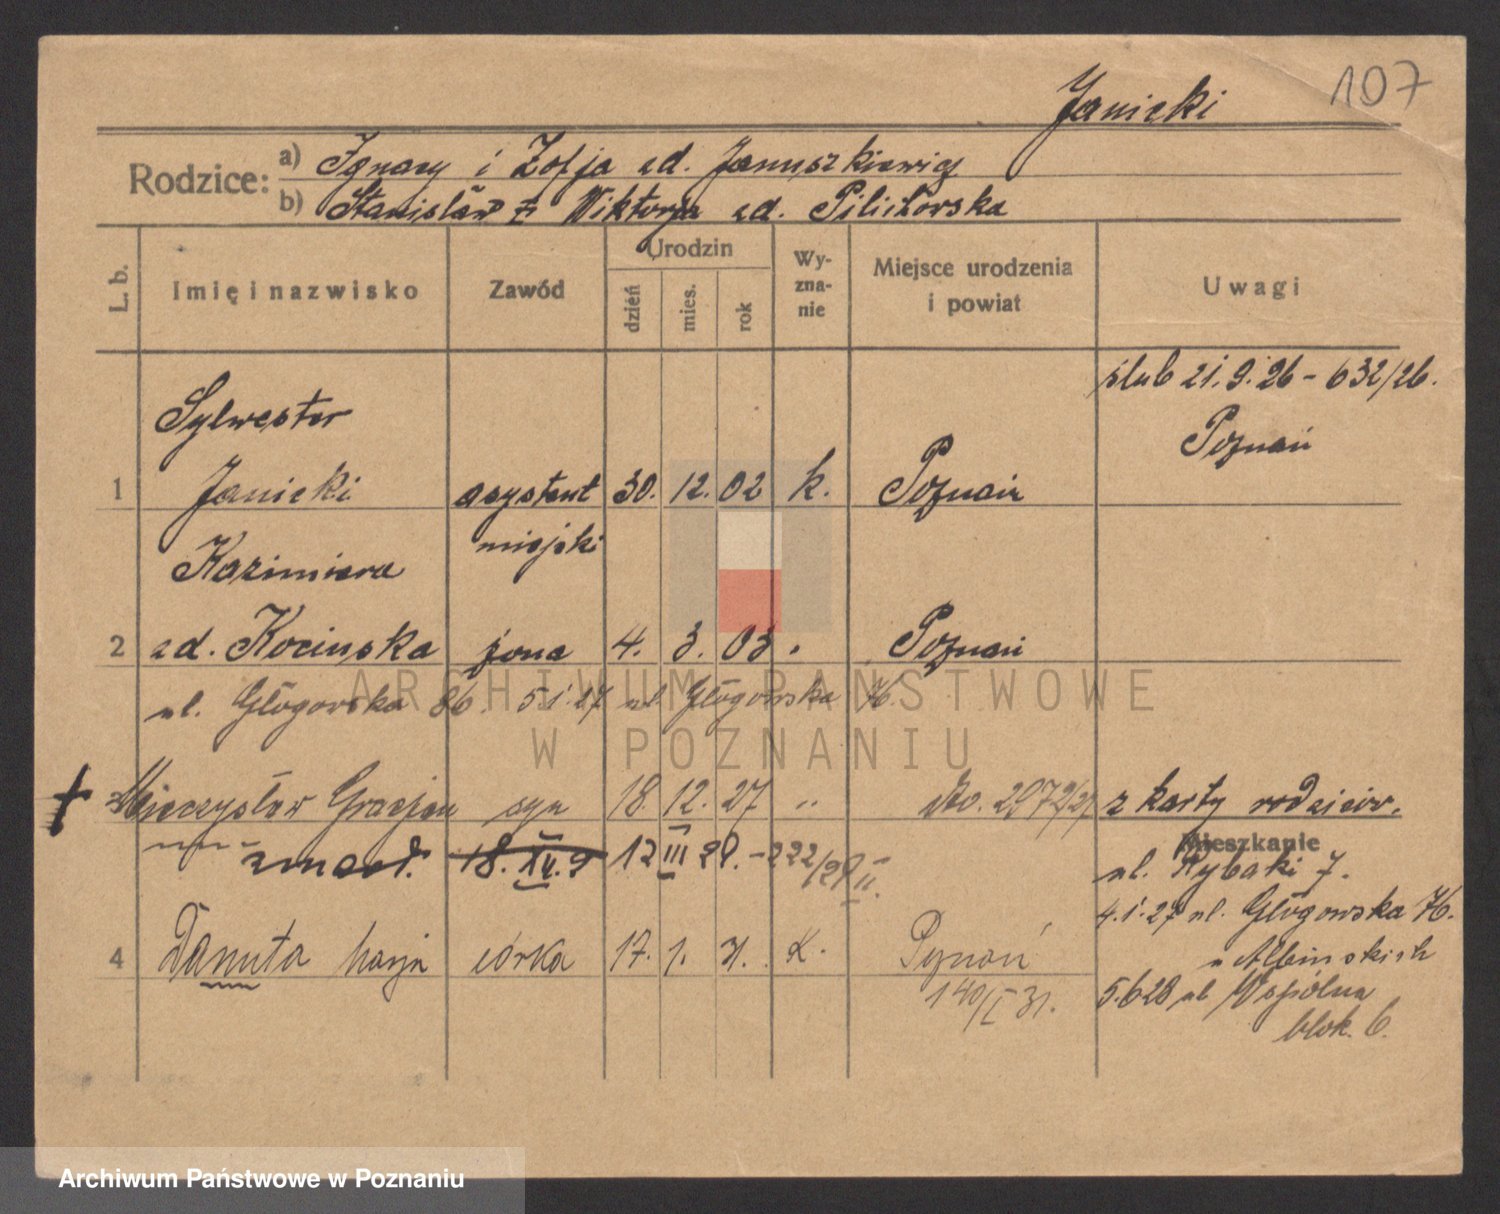 107
Janicki
Rodzice:
a) Ignacy i Zofja zd. Januszkiewicz
b) Stanisław i Wiktorja zd. Pilichowska
L. b.
Imię i nazwisko
Zawód
Urodzin
dzień
mies.
rok
Wy-
zna-
nie
Miejsce urodzenia
i powiat
Uwagi
ślub 21.9.26 - 632/26.
Poznań
Sylwester
1 Janicki asystent 30. 12. 02 k. Poznań
miejski
Kazimiera
2 zd. Kocińska żona 4. 3. 03 " Poznań
ul. Głogowska 86. 5.1.27 ul. Głogowska 76.
+ Mieczysław Gracjan syn 18. 12. 27 " No. 2972/27 z karty rodziców.
Mieszkanie
zmarł. 18. XII. 9 12 III 28. - 222/28 II.
ul. Rybaki 7.
4.1.27 ul. Głogowska 76.
u Albińskich
4 Danuta Marja córka 17. 1. 31. k. Poznań
140/I 31.
5.6 28 ul Wspólna
blok. 6.
ARCHIWUM PAŃSTWOWE
W POZNANIU
Archiwum Państwowe w Poznaniu